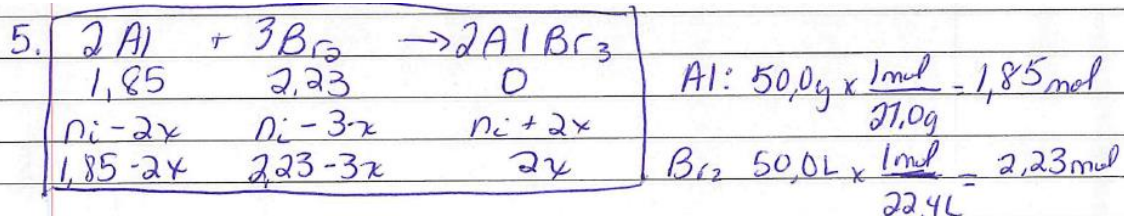 5. 2Al + 3Br₂ → 2AlBr₃
1,85 2,23 0
ni - 2x ni - 3x ni + 2x
1,85 - 2x 2,23 - 3x 2x
Al: 50,0g x 1mol/27,0g = 1,85 mol
Br₂ 50,0L x 1mol/22,4L = 2,23 mol